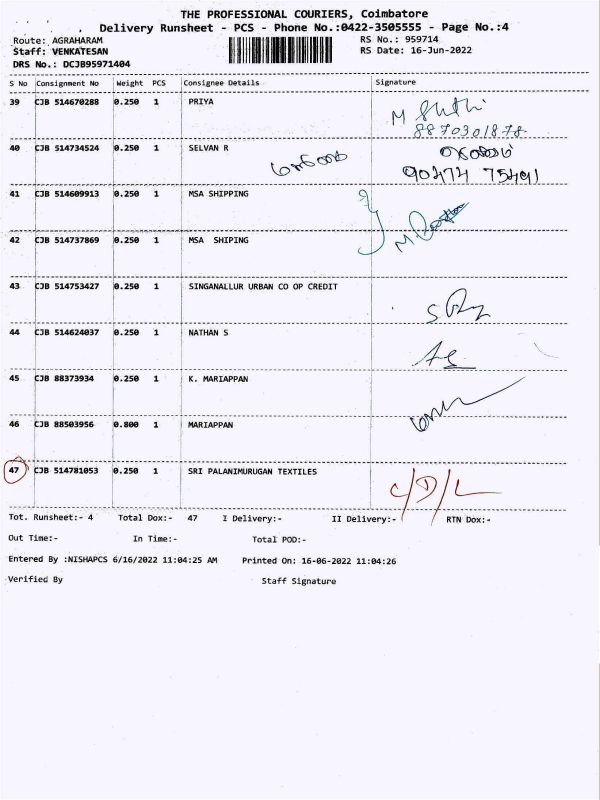 THE PROFESSIONAL COURIERS, Coimbatore
Delivery Runsheet - PCS - Phone No.:0422-3505555 - Page No.:4
Route: AGRAHARAM RS No.: 959714
Staff: VENKATESAN RS Date: 16-Jun-2022
DRS No.: DCJB95971404
S No Consignment No Weight PCS Consignee Details Signature
39 CJB 514670288 0.250 1 PRIYA
8870301878
40 CJB 514734524 0.250 1 SELVAN R
90474 75491
41 CJB 514609913 0.250 1 MSA SHIPPING
42 CJB 514737869 0.250 1 MSA SHIPING
43 CJB 514753427 0.250 1 SINGANALLUR URBAN CO OP CREDIT
44 CJB 514624037 0.250 1 NATHAN S
45 CJB 88373934 0.250 1 K. MARIAPPAN
46 CJB 88503956 0.800 1 MARIAPPAN
47 CJB 514781053 0.250 1 SRI PALANIMURUGAN TEXTILES C/D/L
Tot. Runsheet:- 4 Total Dox:- 47 I Delivery:- II Delivery:- RTN Dox:-
Out Time:- In Time:- Total POD:-
Entered By :NISHAPCS 6/16/2022 11:04:25 AM Printed On: 16-06-2022 11:04:26
Verified By Staff Signature